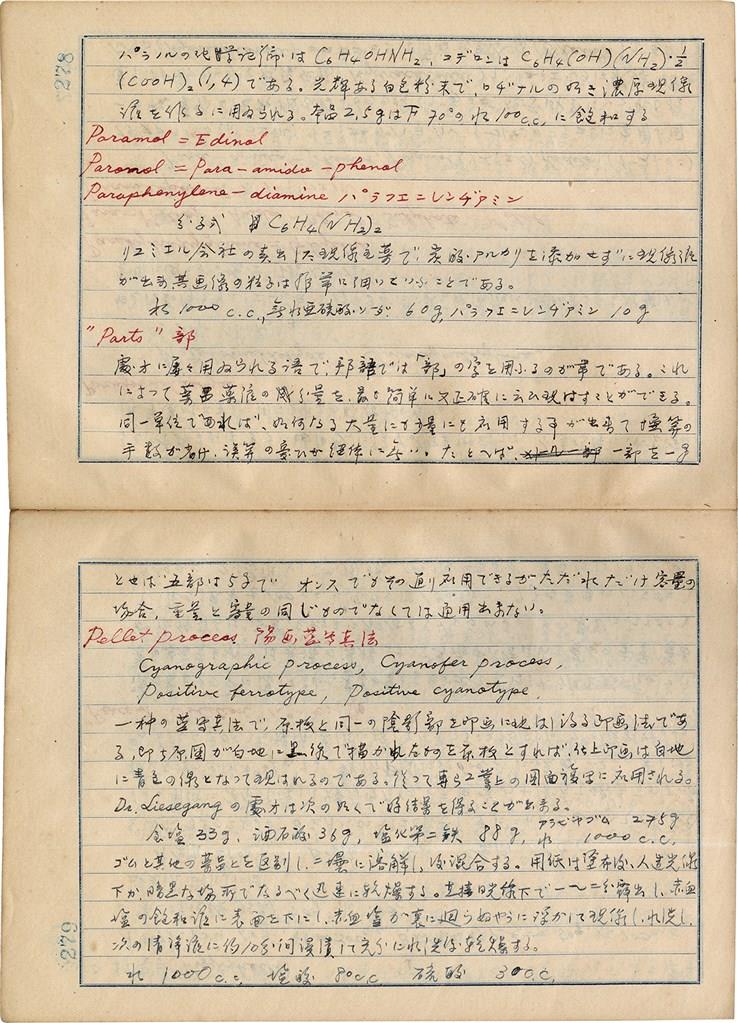 278
パラノルの化学記号は C₆H₄OHNH₂, コデロンは C₆H₄(OH)(NH₂)·½
(COOH)₂(1,4) である。光輝ある白色粉末で、ロヂナルの如き濃厚現像
液を作るに用ゐられる。本品 2.5g は下 70°の水 100c.c. に飽和する
Paramol = Edinol
Paranol = Para-amido-phenol
Paraphenylene-diamine パラフエニレンヂアミン
分子式 C₆H₄(NH₂)₂
リユミエル会社の売出した現像主薬で、炭酸アルカリを添加せずに現像液
が出来其画像の粒子は非常に細いといふことである。
水 1000 c.c., 無水亜硫酸ソーダ 60g, パラフエニレンヂアミン 10g
"Parts" 部
処方に屡々用ゐられる語で、邦語では「部」の字を用ふるのが常である。これ
によつて薬品薬液の成分量を、最も簡単に又正確に云ひ現はすことができる。
同一単位であれば、如何なる大量にも少量にも応用する事が出来て換算の
手数が省け、誤算の憂ひが絶体に無い。たとへば、一部を一g
とせば五部は5gで オンスでもその通り応用できるが、ただ水だけ容量の
場合、重量と容量の同じものでなくては通用出来ない。
Pellet process 陽画青写真法
Cyanographic process, Cyanofer process,
Positive ferrotype, Positive cyanotype.
一種の青写真法で、原板と同一の陰影部を印画に現はし得る印画法であ
る、即ち原図が白地に黒線で描かれたものを原板とすれば、仕上印画は白地
に青色の線となつて現はれるのである。従つて専ら工業上の図面複写に応用される。
Dr. Liesegang の処方は次の如くで好結果を得ることが出来る。
食塩 33g, 酒石酸 36g, 塩化第二鉄 88g, アラビヤゴム 275g
水 1000 c.c.
ゴムと其他の薬品とを区別し、二壜に溶解し、後混合する。用紙は塗布後、人造光線
下か、暗黒な場所でなるべく迅速に乾燥する。直接日光線下で一〜二分露出し、赤血
塩の飽和液に表面を下にし、赤血塩が裏に廻らぬやうに浮かして現像し、水洗し、
次の清浄液に約10分間浸漬して充分に水洗後乾燥する。
水 1000 c.c. 塩酸 80 c.c. 硫酸 30 c.c.
279